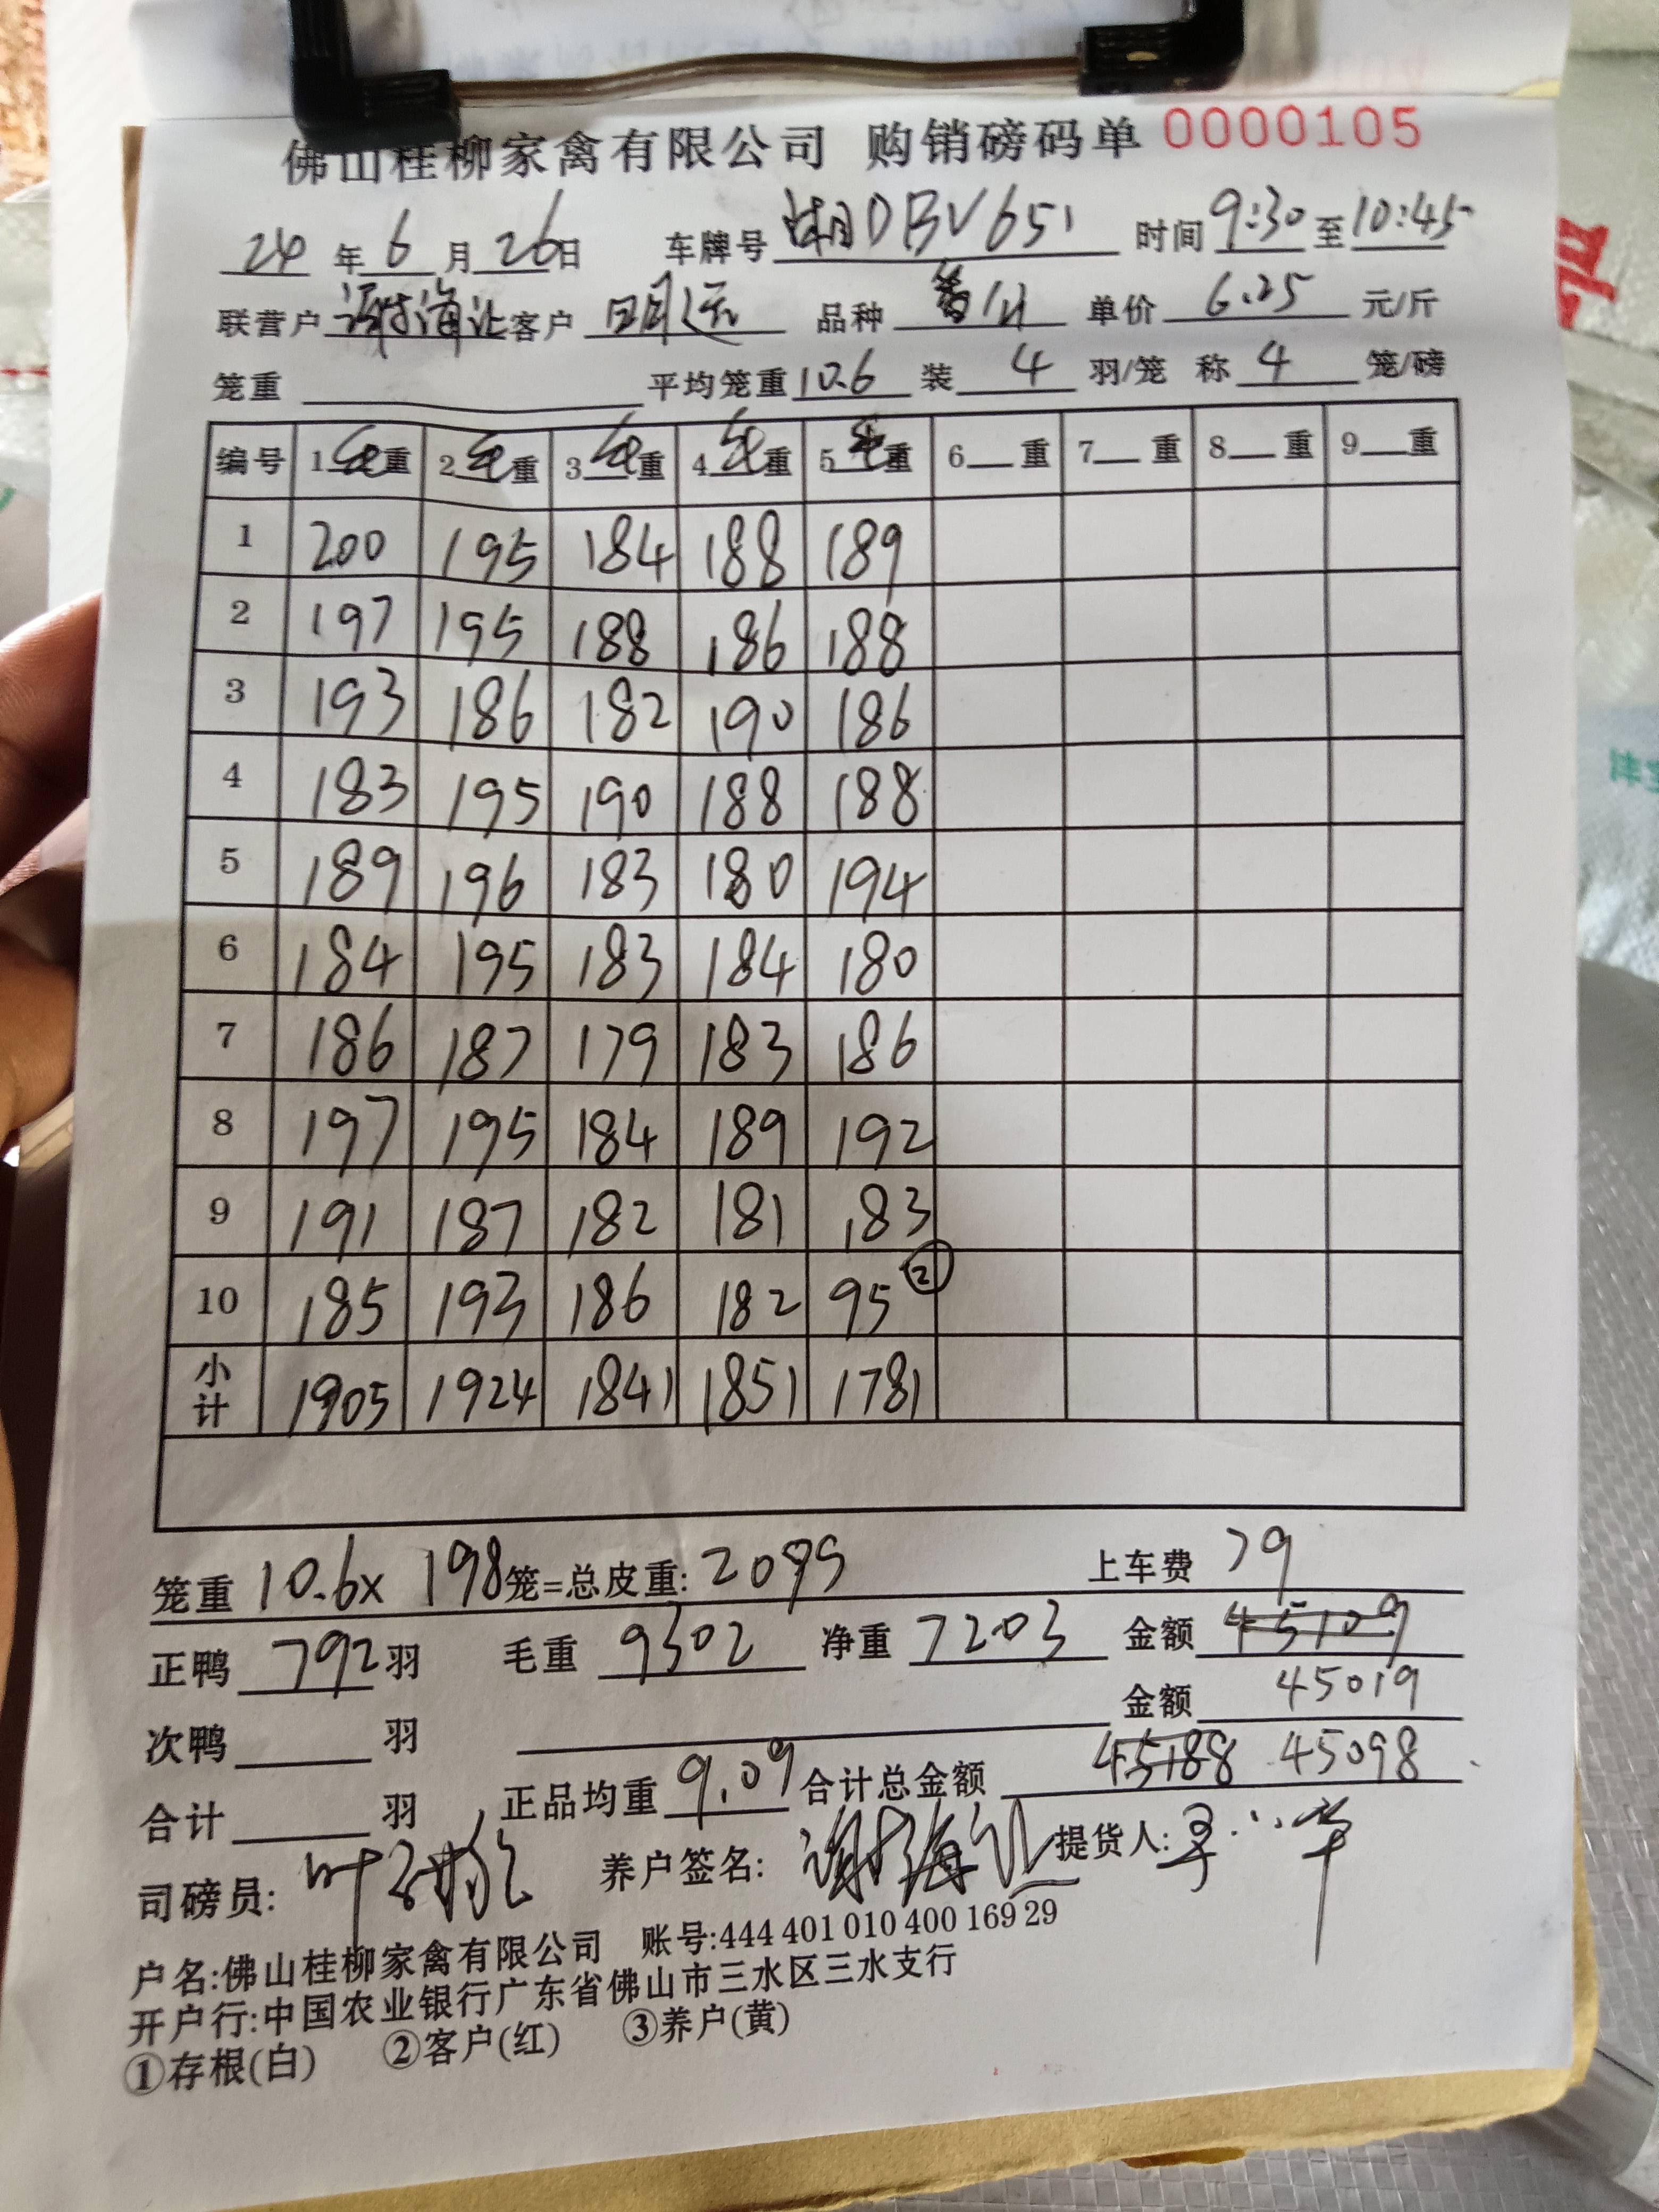 佛山桂柳家禽有限公司 购销磅码单 0000105
24 年 6 月 26 日 车牌号 DBV651 时间 9:30 至 10:45
联营户 谢海让 客户 明远 品种 单价 6.25 元/斤
笼重 平均笼重 10.6 装 4 羽/笼 称 4 笼/磅
编号 1 毛 重 2 毛 重 3 毛 重 4 毛 重 5 毛 重 6 重 7 重 8 重 9 重
1 200 195 184 188 189
2 197 195 188 186 188
3 193 186 182 190 186
4 183 195 190 188 188
5 189 196 183 180 194
6 184 195 183 184 180
7 186 187 179 183 186
8 197 195 184 189 192
9 191 187 182 181 183
10 185 193 186 182 95 ②
小计 1905 1924 1841 1851 1781
笼重 10.6 x 198 笼=总皮重: 2099 上车费 79
正鸭 792 羽 毛重 9302 净重 7203 金额 45109
金额 45019
次鸭 羽
正品均重 9.09 合计总金额 45188 45098
合计 羽
司磅员: 养户签名: 谢海让 提货人:
户名:佛山桂柳家禽有限公司 账号:444 401 010 400 169 29
开户行:中国农业银行广东省佛山市三水区三水支行
①存根(白) ②客户(红) ③养户(黄)